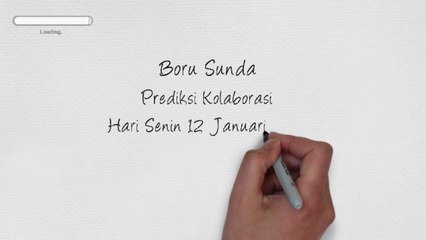 Loading.
Boru Sunda
Prediksi Kolaborasi
Hari Senin 12 Januari